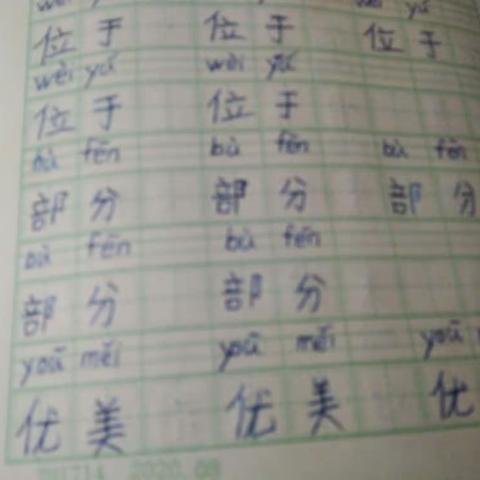 wèi yú
位于 位于 位于
wèi yú wèi yú
位于 位于
bù fēn bù fēn bù fēn
部分 部分 部分
bù fēn bù fēn
部分 部分
yōu měi yōu měi yōu
优美 优美 优
2020.08